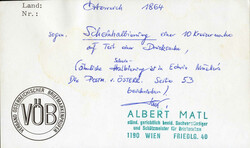 Land: Österreich 1864
Nr.:
sogen. Scheinhalbierung einer 10 Kreuzermarke
auf Teil einer Drucksache,
Schein-
(ähnliche Halbierung ist in Edwin Müller's
Die Postm. v. Österr. Seite 53
beschrieben)
VERBAND ÖSTERREICHISCHER BRIEFMARKENPRÜFER
VÖB
ALBERT MATL
ständ. gerichtlich beeid. Sachverständiger
und Schätzmeister für Briefmarken
1190 WIEN FRIEDLG. 40